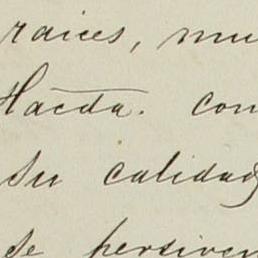 raices, mu
Hacda. con
su calidad
se persiven